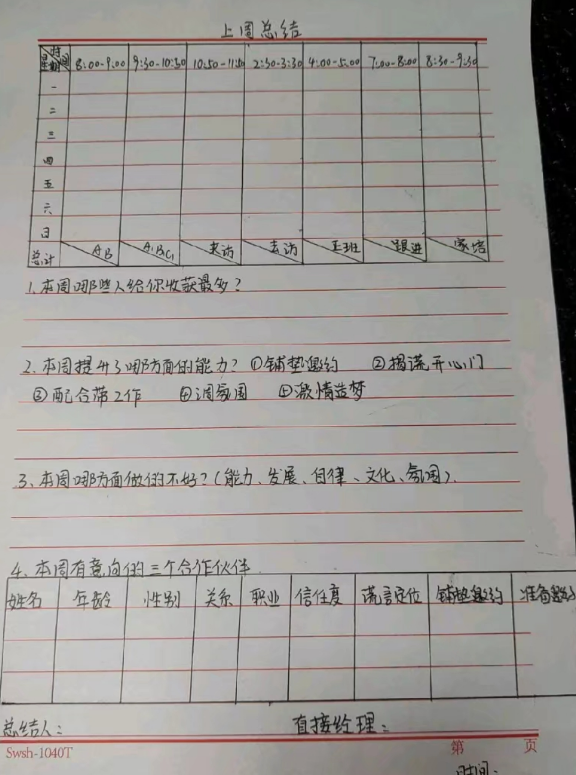 上周总结
时间 星期 8:00-9:00 9:30-10:30 10:50-11:50 2:30-3:30 4:00-5:00 7:00-8:00 8:30-9:30
一
二
三
四
五
六
日
总计 AB A.B.C 来访 去访 正班 跟进 家结
1、本周哪些人给你收获最多?
2、本周提升了哪方面的能力? ①铺垫邀约 ②揭谎开心门
③配合带工作 ④调氛围 ⑤激情造梦
3、本周哪方面做的不好?(能力、发展、自律、文化、氛围).
4、本周有意向的三个合作伙伴
姓名 年龄 性别 关系 职业 信任度 谎言定位 铺垫邀约 准备邀约
总结人: 直接经理:
Swsh-1040T 第 页
时间: